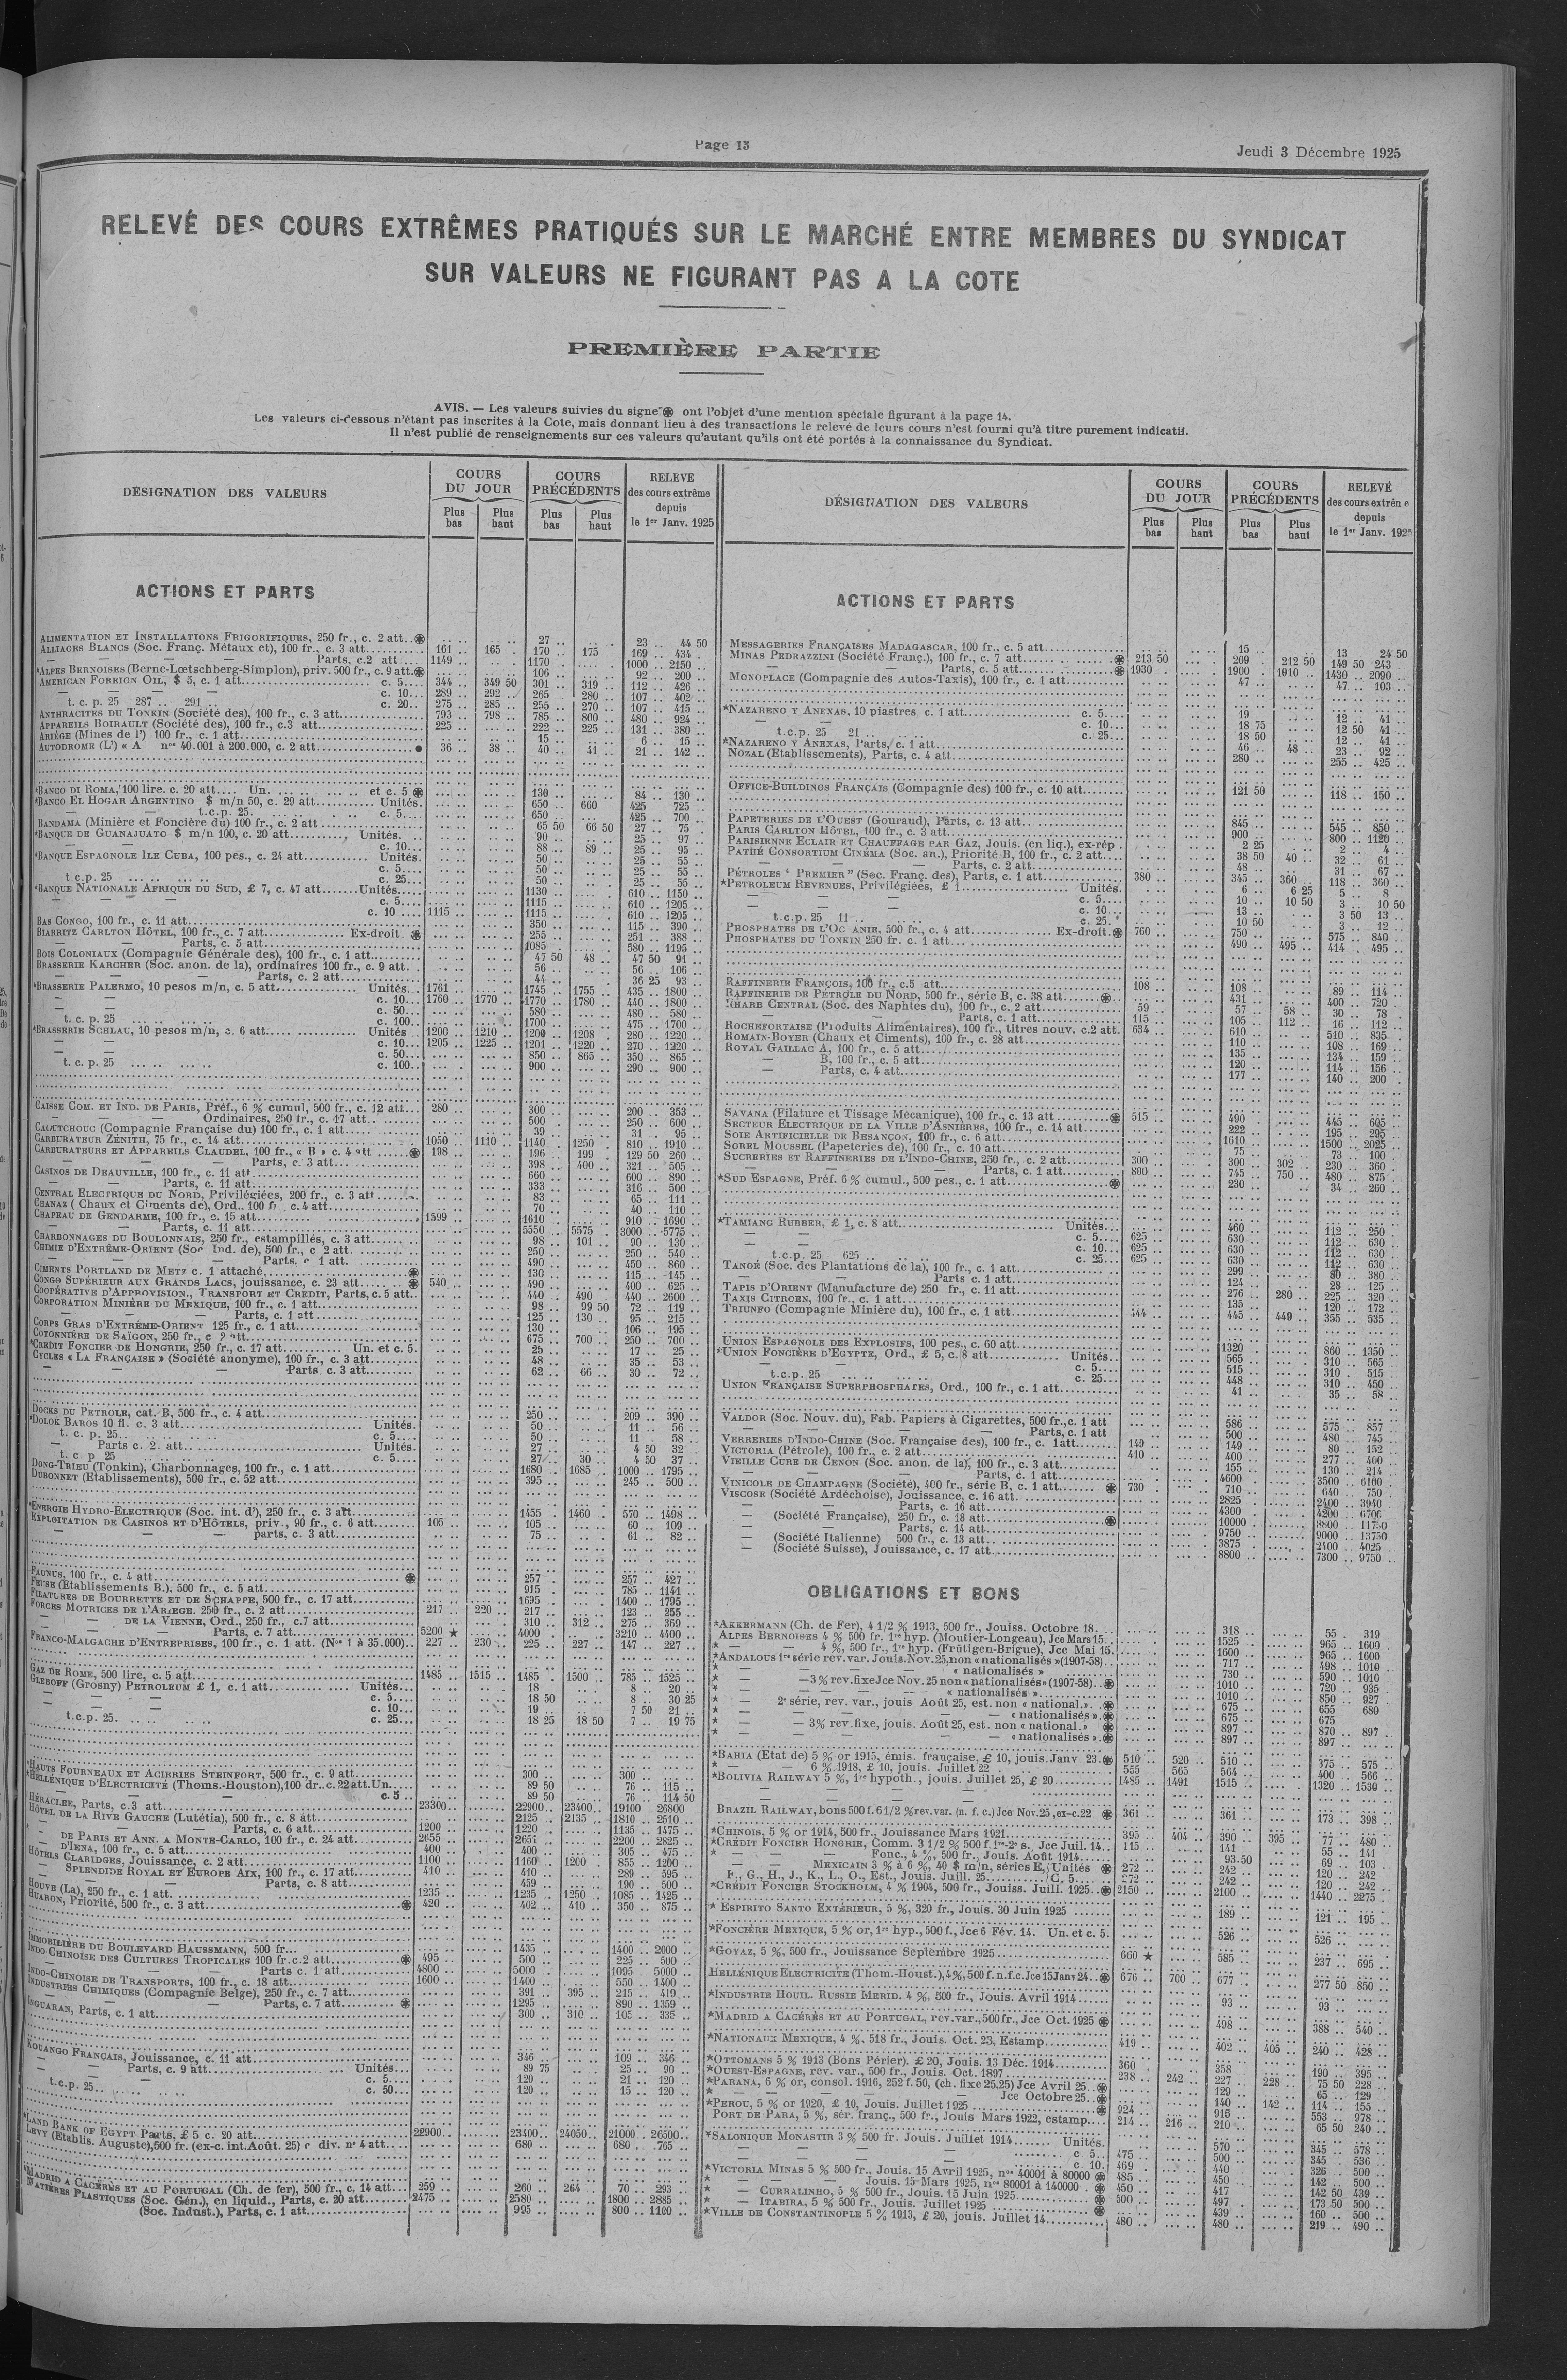 Page 13
Jeudi 3 Décembre 1925
RELEVÉ DES COURS EXTRÊMES PRATIQUÉS SUR LE MARCHÉ ENTRE MEMBRES DU SYNDICAT
SUR VALEURS NE FIGURANT PAS A LA COTE
PREMIÈRE PARTIE
AVIS. — Les valeurs suivies du signe ⊛ ont l'objet d'une mention spéciale figurant à la page 14.
Les valeurs ci-dessous n'étant pas inscrites à la Cote, mais donnant lieu à des transactions le relevé de leurs cours n'est fourni qu'à titre purement indicatif.
Il n'est publié de renseignements sur ces valeurs qu'autant qu'ils ont été portés à la connaissance du Syndicat.
DÉSIGNATION DES VALEURS
COURS DU JOUR
Plus bas
Plus haut
COURS PRÉCÉDENTS
Plus bas
Plus haut
RELEVE des cours extrême depuis le 1er Janv. 1925
ACTIONS ET PARTS
ALIMENTATION ET INSTALLATIONS FRIGORIFIQUES, 250 fr., c. 2 att.. ⊛ 27 .. 23 .. 44 50
ALLIAGES BLANCS (Soc. Franç. Métaux et), 100 fr., c. 3 att. 161 .. 165 .. 170 .. 175 169 .. 434 .
— — — Parts, c.2 att. 1149 .. 1170 .. 1000 .. 2150 ..
*ALPES BERNOISES (Berne-Lœtschberg-Simplon), priv. 500 fr., c. 9 att. ⊛ 106 .. 92 .. 200 ..
AMERICAN FOREIGN OIL, $ 5, c. 1 att. c. 5.... 344 .. 349 50 301 .. 319 .. 112 .. 426 ..
— — — c. 10... 289 .. 292 .. 265 .. 280 .. 107 .. 402 ..
t. c. p. 25 287 .. 291 .. c. 20.. 275 .. 285 .. 255 .. 270 .. 107 .. 415 ..
ANTHRACITES DU TONKIN (Société des), 100 fr., c. 3 att. 793 .. 798 .. 785 .. 800 480 .. 924 ..
APPAREILS BOIRAULT (Société des), 100 fr., c.3 att. 225 .. 222 .. 225 .. 131 .. 380 ..
ARIÈGE (Mines de l') 100 fr., c. 1 att. 15 .. 6 .. 15 ..
AUTODROME (L') « A nos 40.001 à 200.000, c. 2 att. 36 .. 38 .. 40 .. 41 .. 21 .. 142 ..
*BANCO DI ROMA, 100 lire. c. 20 att.... Un. .. et c. 5 ⊛ 130 .. 84 .. 130 ..
*BANCO EL HOGAR ARGENTINO $ m/n 50, c. 29 att. Unités. 650 .. 660 425 .. 725 ..
t.c.p. 25. c. 5.... 650 .. 425 .. 700 ..
BANDAMA (Minière et Foncière du) 100 fr., c. 2 att 65 50 66 50 27 .. 75 .
*BANQUE DE GUANAJUATO $ m/n 100, c. 20 att. Unités. 90 .. 25 .. 97 ..
— — c. 10... 88 .. 89 .. 25 .. 95 ..
*BANQUE ESPAGNOLE ILE CUBA, 100 pes., c. 24 att. Unités. 50 .. 25 .. 55 ..
c. 5.... 50 .. 25 .. 55 ..
t.c.p. 25 c. 25... 50 .. 25 .. 55 ..
*BANQUE NATIONALE AFRIQUE DU SUD, £ 7, c. 47 att. Unités... 1130 .. 610 .. 1150 ..
— — — c. 5.... 1115 .. 610 .. 1205 ..
c. 10 .... 1115 .. 1115 .. 610 .. 1205 ..
BAS CONGO, 100 fr., c. 11 att. 350 .. 115 .. 390 ..
BIARRITZ CARLTON HÔTEL, 100 fr., c. 7 att. Ex-droit. ⊛ 255 .. 251 .. 388 ..
— — Parts, c. 5 att. 1085 580 .. 1195 ..
BOIS COLONIAUX (Compagnie Générale des), 100 fr., c. 1 att. 47 50 48 .. 47 50 91 ..
BRASSERIE KARCHER (Soc. anon. de la), ordinaires 100 fr., c. 9 att. 56 .. 56 .. 106 ..
— — — Parts, c. 2 att. 44 .. 36 25 93 ..
*BRASSERIE PALERMO, 10 pesos m/n, c. 5 att. Unités.. 1761 1745 .. 1755 .. 435 .. 1800 ..
— — c. 10... 1760 .. 1770 .. 1770 .. 1780 .. 440 .. 1800 ..
— — c. 50... 580 .. 480 .. 580 ..
t. c. p. 25 c. 100.. 1700 .. 475 .. 1700 ..
*BRASSERIE SCHLAU, 10 pesos m/n, c. 6 att. Unités 1200 .. 1210 .. 1200 .. 1208 .. 280 .. 1220 ..
— — c. 10... 1205 .. 1225 .. 1201 .. 1220 .. 270 .. 1220 ..
— — c. 50... 850 .. 865 .. 350 .. 865 ..
t. c. p. 25 c. 100.. 900 .. 290 .. 900 ..
CAISSE COM. ET IND. DE PARIS, Préf., 6 % cumul, 500 fr., c. 12 att... 280 .. 300 .. 200 .. 353 ..
— — — Ordinaires, 250 fr., c. 17 att.. 500 .. 250 .. 600 ..
CAOUTCHOUC (Compagnie Française du) 100 fr., c. 1 att. 39 .. 31 .. 95 ..
CARBURATEUR ZÉNITH, 75 fr., c. 14 att. 1050 .. 1110 .. 1140 .. 1250 .. 810 .. 1910 ..
CARBURATEURS ET APPAREILS CLAUDEL, 100 fr., « B » c. 4 att ⊛ 198 .. 196 .. 199 .. 129 50 260 ..
— — — Parts, c. 3 att. 398 .. 400 .. 321 .. 505 ..
CASINOS DE DEAUVILLE, 100 fr., c. 11 att 660 .. 600 .. 890 ..
— — Parts, c. 11 att. 333 .. 316 .. 500 ..
CENTRAL ELECTRIQUE DU NORD, Privilégiées, 200 fr., c. 3 att 83 .. 65 .. 111 ..
CHANAZ ( Chaux et Ciments de), Ord.. 100 fr c. 4 att. 70 .. 40 .. 110 ..
CHAPEAU DE GENDARME, 100 fr., c. 15 att. 1599 .. 1610 .. 910 .. 1690 ..
— — Parts, c. 11 att. 5550 .. 5575 .. 3000 .. 5775 ..
CHARBONNAGES DU BOULONNAIS, 250 fr., estampillés, c. 3 att. 98 .. 101 .. 90 .. 130 ..
CHIMIE D'EXTRÊME-ORIENT (Soc Ind. de), 500 fr., c 2 att. 250 .. 250 .. 540 ..
— — — Parts. c 1 att. 490 .. 450 .. 860 ..
CIMENTS PORTLAND DE METZ c. 1 attaché. ⊛ 130 .. 115 .. 145 ..
CONGO SUPÉRIEUR AUX GRANDS LACS, jouissance, c. 23 att. ⊛ 540 .. 490 .. 400 .. 625 ..
COOPÉRATIVE D'APPROVISION., TRANSPORT ET CREDIT, Parts, c. 5 att.. 440 .. 490 440 .. 2600 ..
CORPORATION MINIÈRE DU MEXIQUE, 100 fr., c. 1 att. 98 .. 99 50 72 .. 119 ..
— — — Parts, c. 1 att 125 .. 130 .. 95 .. 215 ..
CORPS GRAS D'EXTRÊME-ORIENT 125 fr., c. 1 att. 130 .. 106 .. 195 ..
COTONNIÈRE DE SAÏGON, 250 fr., c ? att. 675 .. 700 .. 250 .. 700 ..
*CREDIT FONCIER DE HONGRIE, 250 fr., c. 17 att. Un. et c. 5. 25 .. 17 .. 25 ..
CYCLES « LA FRANÇAISE » (Société anonyme), 100 fr., c. 3 att. 48 .. 35 .. 53 ..
— — Parts, c. 3 att. 62 .. 66 .. 30 .. 72 ..
DOCKS DU PETROLE, cat. B, 500 fr., c. 4 att. 250 .. 209 .. 390 ..
*DOLOK BAROS 10 fl. c. 3 att. Unités. 50 .. 11 .. 56 ..
t. c. p. 25.. c. 5.... 50 .. 11 .. 58 ..
— Parts c. 2. att. Unités. 27 .. 4 50 32 ..
t. c p 25 c. 5.... 27 .. 30 .. 4 50 37 ..
DONG-TRIEU (Tonkin), Charbonnages, 100 fr., c. 1 att. 1680 .. 1685 .. 1000 .. 1795 ..
DUBONNET (Etablissements), 500 fr., c. 52 att. 395 .. 245 .. 500 ..
*ENERGIE HYDRO-ELECTRIQUE (Soc. int. d'), 250 fr., c. 3 att. 1455 .. 1460 .. 570 .. 1498 ..
EXPLOITATION DE CASINOS ET D'HÔTELS, priv., 90 fr., c. 6 att. 105 .. 105 .. 60 .. 109 ..
— — — parts, c. 3 att. 75 .. 61 .. 82 ..
FAUNUS, 100 fr., c. 4 att. ⊛ 257 .. 257 .. 427 ..
FEUSE (Etablissements B.), 500 fr., c. 5 att. 915 .. 785 .. 1141 ..
FILATURES DE BOURRETTE ET DE SCHAPPE, 500 fr., c. 17 att. 1695 .. 1400 .. 1795 ..
FORCES MOTRICES DE L'ARIEGE. 250 fr., c. 2 att. 217 .. 220 .. 217 .. 123 .. 255 ..
— — DE LA VIENNE, Ord., 250 fr., c.7 att. 310 .. 312 .. 275 .. 369 ..
— — Parts, c. 7 att. 5200 ★ 4000 .. 3210 .. 4400 ..
FRANCO-MALGACHE D'ENTREPRISES, 100 fr., c. 1 att. (Nos 1 à 35.000).. 227 .. 230 .. 225 .. 227 .. 147 .. 227 ..
GAZ DE ROME, 500 lire, c. 5 att. 1485 .. 1515 .. 1485 .. 1500 .. 785 .. 1525 ..
GLEBOFF (Grosny) PETROLEUM £ 1, c. 1 att. Unités... 18 .. 8 .. 20 ..
c. 5.... 18 50 8 .. 30 25
c. 10... 19 .. 7 50 21 ..
t.c.p. 25. c. 25... 18 25 18 50 7 .. 19 75
*HAUTS FOURNEAUX ET ACIERIES STEINFORT, 500 fr., c. 9 att. 300 .. 300 ..
*HELLÉNIQUE D'ELECTRICITÉ (Thoms.-Houston), 100 dr.. c. 22 att. Un. 89 50 76 .. 115 ..
c. 5 .. 89 50 76 .. 114 50
HÉRACLEE, Parts, c.3 att. 23300.. 22900.. 23400.. 19100 .. 26800
HÔTEL DE LA RIVE GAUCHE (Lutétia), 500 fr., c. 8 att. 2125 .. 2135 .. 1810 .. 2510 ..
— — Parts, c. 6 att. 1200 .. 1220 .. 1135 .. 1475 ..
— DE PARIS ET ANN. A MONTE-CARLO, 100 fr., c. 24 att. 2655 .. 2651 .. 2200 .. 2825 ..
— D'IENA, 100 fr., c. 5 att. 400 .. 400 .. 305 .. 475 ..
HÔTELS CLARIDGES, Jouissance, c. 2 att. 1100 .. 1160 .. 1200 855 .. 1200 ..
— SPLENDIDE ROYAL ET EUROPE AIX, 100 fr., c. 17 att. 410 .. 410 .. 289 .. 595 ..
— — Parts, c. 8 att. 459 .. 190 .. 500 ..
HOUVE (La), 250 fr., c. 1 att. 1235 .. 1235 .. 1250 .. 1085 .. 1425 ..
HUARON, Priorité, 500 fr., c. 3 att. ⊛ 420 .. 402 .. 410 .. 350 .. 875 ..
IMMOBILIÈRE DU BOULEVARD HAUSSMANN, 500 fr... 1435 .. 1400 .. 2000 ..
INDO CHINOISE DES CULTURES TROPICALES 100 fr. c.2 att. ⊛ 495 .. 500 .. 225 .. 500 ..
— — — Parts c. 1 att. 4800 .. 5000 .. 1095 .. 5000 ..
INDO-CHINOISE DE TRANSPORTS, 100 fr., c. 18 att. 1600 .. 1400 .. 550 .. 1400 ..
INDUSTRIES CHIMIQUES (Compagnie Belge), 250 fr., c. 7 att. 391 .. 395 .. 215 .. 419 ..
— — Parts, c. 7 att. ⊛ 1295 .. 890 .. 1359 ..
INGUARAN, Parts, c. 1 att. 300 .. 310 .. 105 .. 335 ..
KOUANGO FRANÇAIS, Jouissance, c. 11 att. 346 .. 109 .. 346 ..
— — Parts, c. 9 att. Unités... 89 75 25 .. 90 ..
— — c. 5.... 120 .. 21 .. 120 ..
t.c.p. 25.. c. 50... 120 .. 15 .. 120 ..
*LAND BANK OF EGYPT Parts, £ 5 c. 20 att. 22900.. 23400.. 24050.. 21000 .. 26500..
LEVY (Etablis. Auguste), 500 fr. (ex-c. int. Août. 25) c div. n° 4 att... 680 .. 680 .. 765 ..
*MADRID A CACÉRÈS ET AU PORTUGAL (Ch. de fer), 500 fr., c. 14 att... 259 .. 260 .. 264 .. 70 .. 293 ..
MATIÈRES PLASTIQUES (Soc. Gén.), en liquid., Parts, c. 20 att. 2475 .. 2580 .. 1800 .. 2885 ..
(Soc. Indust.), Parts, c. 1 att. 995 .. 800 .. 1100 ..
DÉSIGNATION DES VALEURS
COURS DU JOUR
Plus bas
Plus haut
COURS PRÉCÉDENTS
Plus bas
Plus haut
RELEVÉ des cours extrême depuis le 1er Janv. 1925
ACTIONS ET PARTS
MESSAGERIES FRANÇAISES MADAGASCAR, 100 fr., c. 5 att. 15 .. 13 24 50
MINAS PEDRAZZINI (Société Franç.), 100 fr., c. 7 att. ⊛ 213 50 209 .. 212 50 149 50 243 ..
— — Parts, c. 5 att. ⊛ 1930 .. 1900 .. 1910 .. 1430 .. 2090 ..
MONOPLACE (Compagnie des Autos-Taxis), 100 fr., c. 1 att. 47 .. 47 .. 103 ..
*NAZARENO Y ANEXAS, 10 piastres c. 1 att. c. 5.... 19 .. 12 .. 41 ..
— — — c. 10... 18 75 12 50 41 ..
t.c.p. 25 21 .. c. 25... 18 50 12 .. 41 ..
*NAZARENO Y ANEXAS, Parts, c. 1 att. 46 .. 48 .. 23 .. 92 ..
NOZAL (Etablissements), Parts, c. 4 att. 280 .. 255 .. 425 ..
OFFICE-BUILDINGS FRANÇAIS (Compagnie des) 100 fr., c. 10 att. 121 50 118 .. 150 ..
PAPETERIES DE L'OUEST (Gouraud), Parts, c. 13 att. 845 .. 545 .. 850 ..
PARIS CARLTON HÔTEL, 100 fr., c. 3 att. 900 .. 800 .. 1120 ..
PARISIENNE ECLAIR ET CHAUFFAGE PAR GAZ, Jouis. (en liq.), ex-rép . 2 25 2 .. 4 ..
PATHÉ CONSORTIUM CINÉMA (Soc. an.), Priorité B, 100 fr., c. 2 att. 38 50 40 .. 32 .. 61 ..
— — — Parts, c. 2 att. 48 .. 31 .. 67 ..
PÉTROLES ‘ PREMIER ” (Soc. Franç. des), Parts, c. 1 att. 380 .. 345 .. 360 .. 118 .. 360 ..
*PETROLEUM REVENUES, Privilégiées, £ 1 Unités. 6 .. 6 25 5 .. 8 ..
— — c. 5.... 10 .. 10 50 3 .. 10 50
— — c. 10... 13 .. 3 50 13 ..
t.c.p. 25 11 .. c. 25. 10 50 3 .. 12 ..
PHOSPHATES DE L'OCEANIE, 500 fr., c. 4 att. Ex-droit. ⊛ 760 .. 750 .. 575 .. 840 ..
PHOSPHATES DU TONKIN 250 fr. c. 1 att. 490 .. 495 .. 414 .. 495 ..
RAFFINERIE FRANÇOIS, 100 fr., c.5 att. 108 .. 108 .. 89 .. 114 ..
RAFFINERIE DE PÉTROLE DU NORD, 500 fr., série B, c. 38 att. ⊛ 431 .. 400 .. 720 ..
RHARB CENTRAL (Soc. des Naphtes du), 100 fr., c. 2 att. 59 .. 57 .. 58 .. 30 .. 78 ..
— — Parts, c. 1 att. 115 .. 105 .. 112 .. 16 .. 112 ..
ROCHEFORTAISE (Produits Alimentaires), 100 fr., titres nouv. c.2 att. 634 .. 610 .. 510 .. 835 ..
ROMAIN-BOYER (Chaux et Ciments), 100 fr., c. 28 att. 110 .. 108 .. 169 ..
ROYAL GAILLAC A, 100 fr., c. 5 att. 135 .. 134 .. 159 ..
— B, 100 fr., c. 5 att. 120 .. 114 .. 156 ..
— Parts, c. 4 att. 177 .. 140 .. 200 ..
SAVANA (Filature et Tissage Mécanique), 100 fr., c. 13 att ⊛ 515 .. 490 .. 445 .. 605 ..
SECTEUR ELECTRIQUE DE LA VILLE D'ASNIÈRES, 100 fr., c. 14 att. 222 .. 195 .. 295 ..
SOIE ARTIFICIELLE DE BESANÇON, 100 fr., c. 6 att. 1610 .. 1500 .. 2025 ..
SOREL MOUSSEL (Papeteries de), 100 fr., c. 10 att. 75 .. 73 .. 100 ..
SUCRERIES ET RAFFINERIES DE L'INDO-CHINE, 250 fr., c. 2 att. 300 .. 300 .. 302 .. 230 .. 360 ..
— — — Parts, c. 1 att. 800 .. 745 .. 750 .. 480 .. 875 ..
*SUD ESPAGNE, Préf. 6 % cumul., 500 pes., c. 1 att. ⊛ 230 .. 34 .. 260 ..
*TAMIANG RUBBER, £ 1, c. 8 att. Unités... 460 .. 112 .. 250 ..
— — c. 5.... 625 .. 630 .. 112 .. 630 ..
— — c. 10... 625 .. 630 .. 112 .. 630 ..
t.c.p. 25 625 .. c. 25. 625 .. 630 .. 112 .. 630 ..
TANOÉ (Soc. des Plantations de la), 100 fr., c. 1 att. 299 .. 80 .. 380 ..
— — Parts c. 1 att. 124 .. 28 .. 125 ..
TAPIS D'ORIENT (Manufacture de) 250 fr., c. 11 att. 276 .. 280 .. 225 .. 320 ..
TAXIS CITROEN, 100 fr., c. 1 att. 135 .. 120 .. 172 ..
TRIUNFO (Compagnie Minière du), 100 fr., c. 1 att. 445 .. 449 .. 355 .. 535 ..
UNION ESPAGNOLE DES EXPLOSIFS, 100 pes., c. 60 att. 1320 .. 860 .. 1350 ..
*UNION FONCIÈRE D'EGYPTE, Ord., £ 5, c. 8 att. Unités.. 565 .. 310 .. 565 ..
— — c. 5.... 515 .. 310 .. 515 ..
t.c.p. 25 c. 25... 448 .. 310 .. 450 ..
UNION FRANÇAISE SUPERPHOSPHATES, Ord., 100 fr., c. 1 att. 41 .. 35 .. 58 ..
VALDOR (Soc. Nouv. du), Fab. Papiers à Cigarettes, 500 fr., c. 1 att 586 .. 575 .. 857 ..
— — — Parts, c. 1 att 500 .. 480 .. 745 ..
VERRERIES D'INDO-CHINE (Soc. Française des), 100 fr., c. 1att. 149 .. 149 .. 80 .. 152 ..
VICTORIA (Pétrole), 100 fr., c. 2 att. 410 .. 400 .. 277 .. 400 ..
VIEILLE CURE DE CENON (Soc. anon. de la), 100 fr., c. 3 att. 155 .. 130 .. 214 ..
— — — Parts, c. 1 att. 4600 .. 3500 .. 6100 ..
VINICOLE DE CHAMPAGNE (Société), 400 fr., série B, c. 1 att. ⊛ 730 .. 710 .. 640 .. 750 ..
VISCOSE (Société Ardéchoise), Jouissance, c. 16 att. 2825 .. 2400 .. 3940 ..
— — Parts, c. 16 att. 4300 .. 4200 .. 6700 ..
— (Société Française), 250 fr., c. 18 att. ⊛ 10000 .. 8800 .. 11750
— — Parts, c. 14 att. 9750 .. 9000 .. 13750
— (Société Italienne) 500 fr., c. 13 att. 3875 .. 2400 .. 4025
— (Société Suisse), Jouissance, c. 17 att. 8800 .. 7300 .. 9750 ..
OBLIGATIONS ET BONS
*AKKERMANN (Ch. de Fer), 4 1/2 % 1913, 500 fr., Jouiss. Octobre 18. 318 .. 55 . 319
ALPES BERNOISES 4 % 500 fr. 1re hyp. (Moutier-Longeau), Jce Mars 15.. 1525 .. 965 .. 1600 ..
* — — 4 %, 500 fr., 1re hyp. (Frütigen-Brigue), Jce Mai 15. 1600 .. 965 .. 1600 ..
*ANDALOUS 1re série rev. var. Jouis. Nov. 25, non « nationalisés » (1907-58).. 717 .. 498 .. 1010 ..
* — — « nationalisés » 730 .. 590 .. 1010 ..
* — — 3 % rev. fixe Jce Nov. 25 non « nationalisés » (1907-58).. ⊛ 1010 .. 720 .. 935 ..
* — — « nationalisés ». 1010 .. 850 .. 927 ..
* — 2e série, rev. var., jouis Août 25, est. non « national. ». ⊛ 675 .. 655 680
* — — — « nationalisés ». ⊛ 675 .. 675
* — — 3% rev. fixe, jouis. Août 25, est. non « national. » ⊛ 897 .. 870 .. 897 ..
* — — — « nationalisés ». ⊛ 897 .. 897 ..
*BAHIA (Etat de) 5 % or 1915, émis. française, £ 10, jouis. Janv 23. ⊛ 510 .. 520 .. 510 .. 375 .. 575 ..
* — — 6 % 1918, £ 10, jouis. Juillet 22 555 .. 565 564 .. 400 .. 566 ..
*BOLIVIA RAILWAY 5 %, 1re hypoth., jouis. Juillet 25, £ 20 1485 .. 1491 1515 .. 1320 .. 1539 ..
BRAZIL RAILWAY, bons 500 f. 6 1/2 % rev. var. (n. f. c.) Jce Nov. 25, ex-c.22 ⊛ 361 .. 361 .. 173 .. 398 ..
*CHINOIS, 5 % or 1914, 500 fr., Jouissance Mars 1921. 395 .. 404 .. 390 .. 395 .. 77 .. 480 ..
*CRÉDIT FONCIER HONGRIE, Comm. 3 1/2 % 500 f. 1re-2e s. Jce Juil. 14.. 115 .. 141 .. 55 .. 141 ..
— — Fonc., 4 %, 500 fr., Jouis. Août 1914. 93 50 69 .. 103 ..
— — MEXICAIN 3 % à 6 %, 40 $ m/n, séries E, Unités ⊛ 272 .. 242 .. 120 .. 242 ..
F., G., H., J., K., L., O., Est., Jouis. Juill. 25. C. 5.. 272 .. 242 .. 120 .. 242 ..
*CRÉDIT FONCIER STOCKHOLM, 4 % 1904, 500 fr., Jouiss. Juill. 1925.. ⊛ 2150 .. 2100 .. 1440 .. 2275 ..
* ESPIRITO SANTO EXTÉRIEUR, 5 %, 320 fr., Jouis. 30 Juin 1925 189 .. 121 .. 195 ..
*FONCIÈRE MEXIQUE, 5 % or, 1re hyp., 500 f., Jce 6 Fév. 14. Un. et c. 5. 526 .. 526 ..
*GOYAZ, 5 %, 500 fr., Jouissance Septembre 1925 660 ★ 585 .. 237 .. 695 ..
HELLÉNIQUE ELECTRICITÉ (Thom.-Houst.), 4 %, 500 f. n. f. c. Jce 15 Janv 24.. ⊛ 676 .. 700 .. 677 .. 277 50 850 ..
*INDUSTRIE HOUIL. RUSSIE MERID. 4 %, 500 fr., Jouis. Avril 1914 93 .. 93 ..
*MADRID A CACÉRÈS ET AU PORTUGAL, rev. var., 500 fr., Jce Oct. 1925 ⊛ 498 .. 388 .. 540 ..
*NATIONAUX MEXIQUE, 4 %, 518 fr., Jouis. Oct. 23, Estamp. 419 .. 402 .. 405 .. 240 .. 428 ..
*OTTOMANS 5 % 1913 (Bons Périer). £ 20, Jouis. 13 Déc. 1914. 360 .. 358 .. 190 .. 395 ..
*OUEST-ESPAGNE, rev. var., 500 fr., Jouis. Oct. 1897 238 .. 242 .. 227 .. 228 .. 75 50 228 ..
*PARANA, 6 % or, consol. 1916, 252 f. 50, (ch. fixe 25,25) Jce Avril 25.. ⊛ 129 .. 65 .. 129 ..
* — — Jce Octobre 25.. ⊛ 140 .. 142 .. 114 .. 155 ..
*PEROU, 5 % or 1920, £ 10, Jouis. Juillet 1925 ⊛ 924 .. 915 .. 553 .. 978 ..
PORT DE PARA, 5 %, sér. franç., 500 fr., Jouis Mars 1922, estamp... 214 .. 216 .. 210 .. 65 50 240 ..
*SALONIQUE MONASTIR 3 % 500 fr. Jouis. Juillet 1914. Unités. 570 .. 345 .. 578 ..
c 5.. 475 .. 500 .. 345 .. 536 ..
c. 10. 469 .. 440 .. 326 .. 500 ..
*VICTORIA MINAS 5 % 500 fr., Jouis. 15 Avril 1925, nos 40001 à 80000 ⊛ 485 .. 450 .. 142 .. 500 ..
* — Jouis. 15 Mars 1925, nos 80001 à 140000 . ⊛ 450 .. 417 .. 142 50 439 ..
* — CURRALINHO, 5 % 500 fr., Jouis. 15 Juin 1925. ⊛ 500 .. 497 .. 173 50 500 ..
* — ITABIRA, 5 % 500 fr., Jouis. Juillet 1925 ⊛ 439 .. 160 .. 500 ..
*VILLE DE CONSTANTINOPLE 5 % 1913, £ 20, jouis. Juillet 14. 480 .. 480 .. 219 .. 490 ..